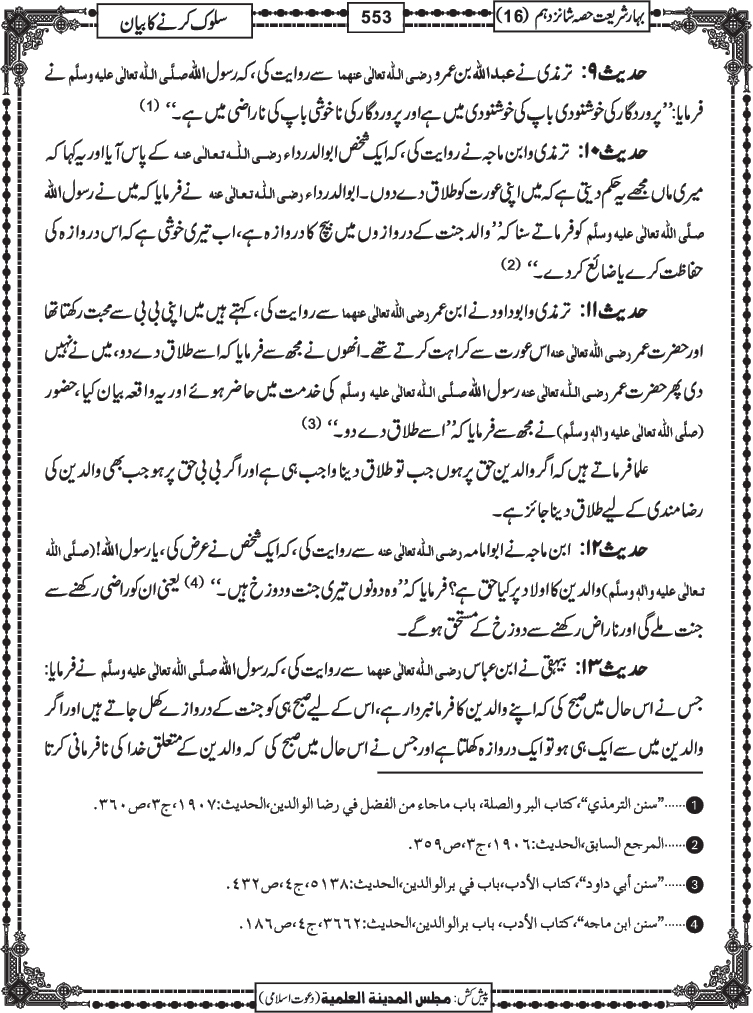 بہارِشریعت حصہ شانزدہم (16)
553
سلوک کرنے کا بیان
حدیث ۹: ترمذی نے عبداللہ بن عمرو رضی اللہ تعالٰی عنہما سے روایت کی، کہ رسول اللہ صلَّی اللہ تعالٰی علیہ وسلَّم نے
فرمایا: ’’پروردگار کی خوشنودی باپ کی خوشنودی میں ہے اور پروردگار کی ناخوشی باپ کی ناراضی میں ہے۔‘‘ (1)
حدیث ۱۰: ترمذی و ابن ماجہ نے روایت کی، کہ ایک شخص ابوالدرداء رضی اللہ تعالٰی عنہ کے پاس آیا اور یہ کہا کہ
میری ماں مجھے یہ حکم دیتی ہے کہ میں اپنی عورت کو طلاق دے دوں۔ ابوالدرداء رضی اللہ تعالٰی عنہ نے فرمایا کہ میں نے رسول اللہ
صلَّی اللہ تعالٰی علیہ وسلَّم کو فرماتے سنا کہ ’’والد جنت کے دروازوں میں بیچ کا دروازہ ہے، اب تیری خوشی ہے کہ اس دروازہ کی
حفاظت کرے یا ضائع کردے۔‘‘ (2)
حدیث ۱۱: ترمذی و ابوداود نے ابن عمر رضی اللہ تعالٰی عنہما سے روایت کی، کہتے ہیں میں اپنی بی بی سے محبت رکھتا تھا
اور حضرت عمر رضی اللہ تعالٰی عنہ اس عورت سے کراہت کرتے تھے۔ انھوں نے مجھ سے فرمایا کہ اسے طلاق دے دو، میں نے نہیں
دی پھر حضرت عمر رضی اللہ تعالٰی عنہ رسول اللہ صلَّی اللہ تعالٰی علیہ وسلَّم کی خدمت میں حاضر ہوئے اور یہ واقعہ بیان کیا، حضور
(صلَّی اللہ تعالٰی علیہ واٰلہٖ وسلَّم) نے مجھ سے فرمایا کہ ’’اسے طلاق دے دو۔‘‘ (3)
علما فرماتے ہیں کہ اگر والدین حق پر ہوں جب تو طلاق دینا واجب ہی ہے اور اگر بی بی حق پر ہو جب بھی والدین کی
رضامندی کے لیے طلاق دینا جائز ہے۔
حدیث ۱۲: ابن ماجہ نے ابوامامہ رضی اللہ تعالٰی عنہ سے روایت کی، کہ ایک شخص نے عرض کی، یارسول اللہ! (صلَّی اللہ
تعالٰی علیہ واٰلہٖ وسلَّم) والدین کا اولاد پر کیا حق ہے؟ فرمایا کہ ’’وہ دونوں تیری جنت و دوزخ ہیں۔‘‘ (4) یعنی ان کو راضی رکھنے سے
جنت ملے گی اور ناراض رکھنے سے دوزخ کے مستحق ہوگے۔
حدیث ۱۳: بیہقی نے ابن عباس رضی اللہ تعالٰی عنہما سے روایت کی، کہ رسول اللہ صلَّی اللہ تعالٰی علیہ وسلَّم نے فرمایا:
جس نے اس حال میں صبح کی کہ اپنے والدین کا فرمانبردار ہے، اس کے لیے صبح ہی کو جنت کے دروازے کھل جاتے ہیں اور اگر
والدین میں سے ایک ہی ہو تو ایک دروازہ کھلتا ہے اور جس نے اس حال میں صبح کی کہ والدین کے متعلق خدا کی نافرمانی کرتا
1......’’سنن الترمذي‘‘، كتاب البر والصلة، باب ماجاء من الفضل في رضا الوالدين، الحديث: ١٩٠٧، ج٣، ص٣٦٠.
2......المرجع السابق، الحديث: ١٩٠٦، ج٣، ص٣٥٩.
3......’’سنن أبي داود‘‘، كتاب الأدب، باب في بر الوالدين، الحديث: ٥١٣٨، ج٤، ص٤٣٢.
4......’’سنن ابن ماجه‘‘، كتاب الأدب، باب بر الوالدين، الحديث: ٣٦٦٢، ج٤، ص١٨٦.
پیش کش: مجلس المدینۃ العلمیۃ (دعوت اسلامی)